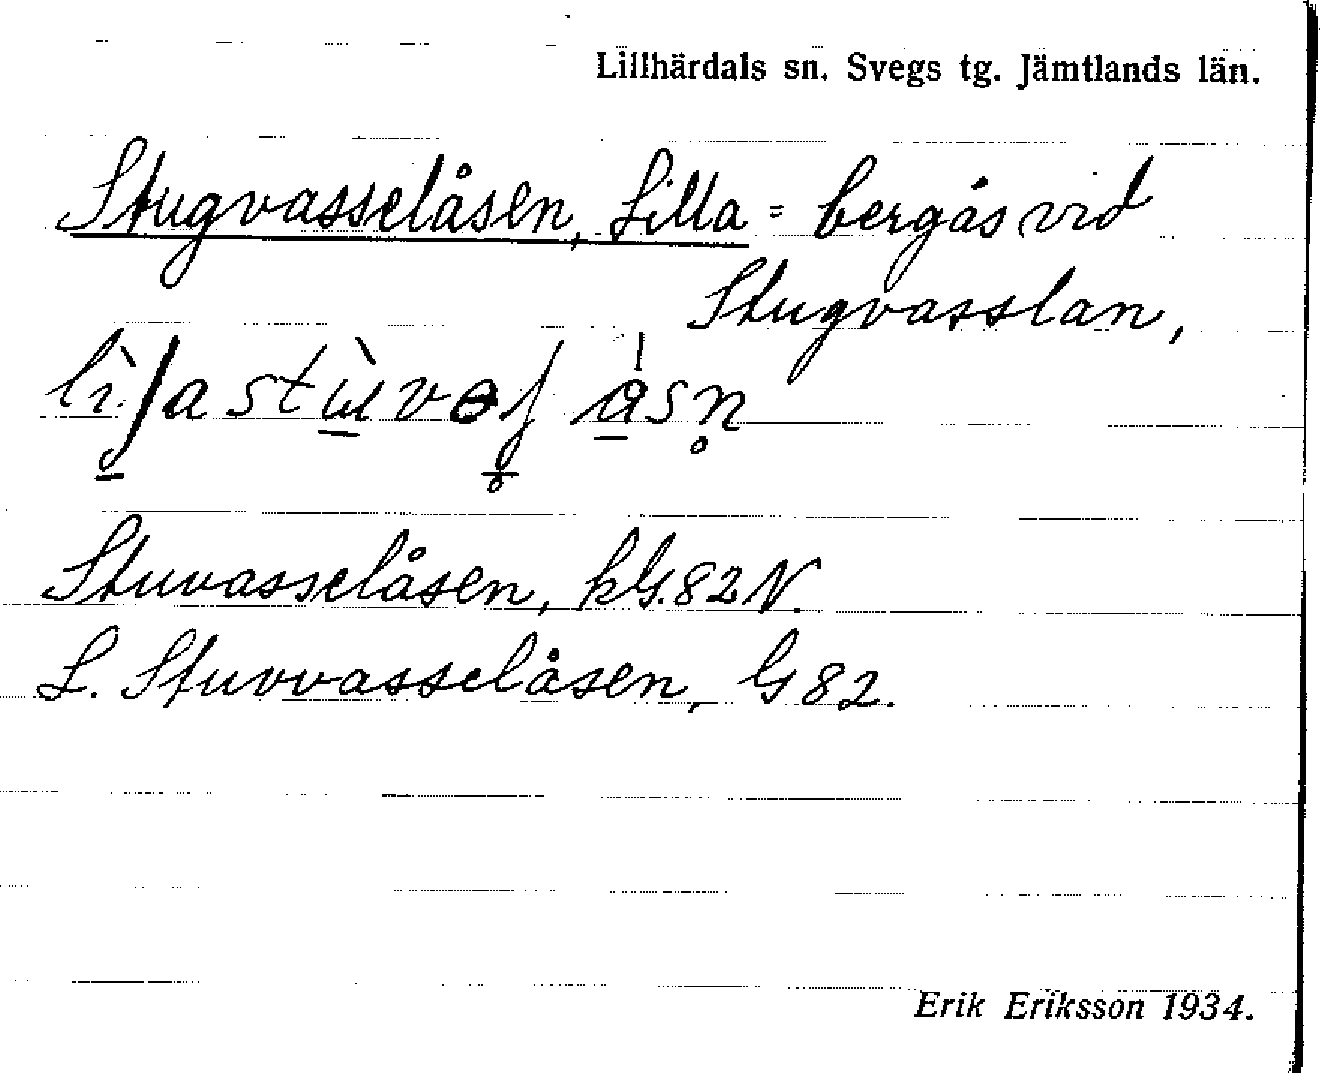 Lillhärdals sn. Svegs tg. Jämtlands län.
Stugvasselåsen, Lilla = bergås vid
Stugvasslan,
Stuvasselåsen, kG.82N.
L. Stuvvasselåsen, G82.
Erik Eriksson 1934.